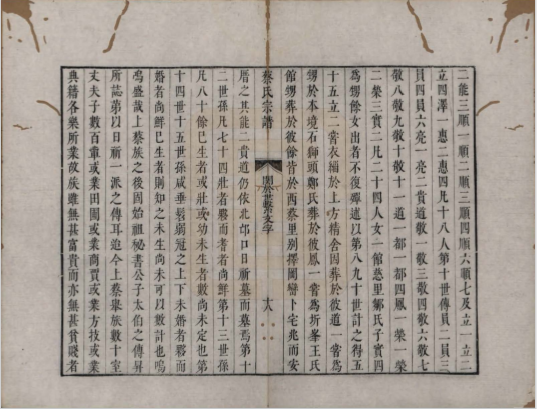 二能三順一順二順三順四順六順七及立一立二
立四澤一惠二惠四凡十八人第十世傳員二員三
員四員六亮一亮二賣道敬一敬三敬四敬六敬七
敬八敬九敬十敬十一道一都一都四鳳一榮一榮
二榮三實二凡二十四人女一館慈里鄒氏子實四
為甥餘女出者不復殫述以第八九十世計之得五
十五立二甞衣緇於上方精舍因葬於彼道一甞為
甥於本境石獅頭鄭氏葬於彼鳳一甞為折峯王氏
館甥葬於彼餘皆於西蔡里別擇岡巒卜宅兆而安
蔡氏宗譜
關於蔡文字
十八
厝之其能二賣道仍依北卬口日新墓而墓為第十
二世孫凡七十四壯者夥而耆者尚鮮第十三世孫
凡八十餘已生者或壯或幼未生者數尚未定也第
十四世十五世孫咸垂髫弱冠之上下未婚者夥而
婚者尚鮮已生者則知之未生尚未可以數計也嗚
鳴盛哉上蔡族之後固始祖秘書公子太伯之傳昇
所誌第以日新一派之傳耳迨今上蔡舉族數十室
丈夫子數百軍或業田園或業商賈或業方技或業
典籍各樂所業故族雖無甚富貴而亦無甚貧賤者